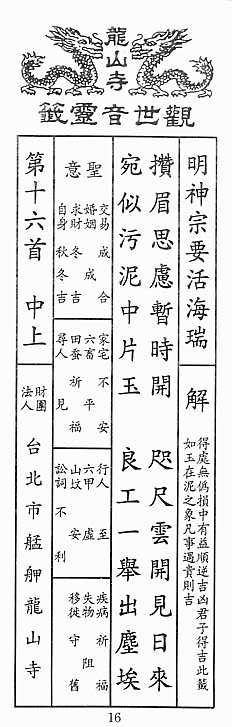 龍山寺
觀世音靈籤
明神宗要活海瑞
解
得處無偽損中有益順逆吉凶君子得吉此籤
如玉在泥之象凡事遇貴則吉
攢眉思慮暫時開　咫尺雲開見日來
宛似污泥中片玉　良工一舉出塵埃
聖意
交易　成　合
婚姻　成
求財　冬　吉
自身　秋　冬　吉
家宅　不　安
六畜　平
田蠶　祈　福
尋人　見
行人　至
六甲　虛
山墳　安
訟詞　不　利
疾病　祈　福
失物　阻
移徙　守　舊
第十六首　中上
財團
法人
台北市艋舺龍山寺
16